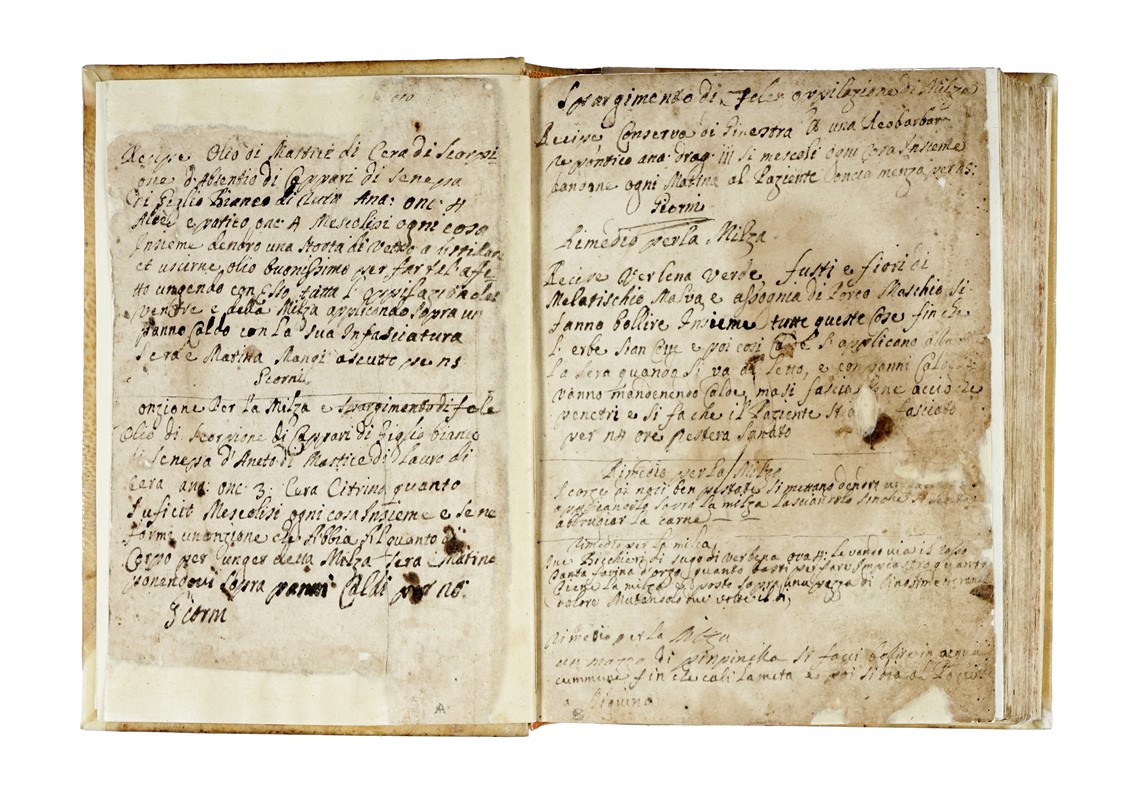 Recipe Olio di Mattici di Cera di Scorpi
one d'Absentio di Cappari di Senepa
di Giglio Bianco di Ana: onc: 4
Aloè epatico onc: 4 Mescolisi ogni cosa
Insieme dentro una Storta di Vetro a
et uscirne olio buonissimo per far tal'effe
tto ungendo con esso tutta l'
ventre e della Milza applicando sopra un
panno Caldo con la sua Infasciatura
Sera e Matina Mangi asciutto per n5
Giorni
onzione Per la Milza e Spargimento di fele
Olio di Scorpione di Cappari di Giglio bianco
di Senepa d'Aneto di Mattice di Lauro di
Cera ana: onc: 3: Cera Citrina quanto
Sufficit Mescolisi ogni cosa Insieme e se ne
formi un'onzione che Abbia il quanto di
Corpo per unger detta Milza Sera e Matina
ponendovi Sopra panni Caldi per no:
Giorni
Spargimento di Fele opilazione di Milza
Recipe Conserva di Ginestra una Reobarbar
pontico ana: drag: iii si mescoli ogni cosa Insieme
dandone ogni Matina al Paziente Oncia menza per n5:
Giorni
Rimedio per la Milza
Recipe Verbena verde fusti e fiori di
Malva e assognia di Porco Maschio si
fanno bollire Insieme tutte queste cose finche
l'erbe sian Cotte e poi cosi si applicano alla
la sera quando si va a letto, e con panni Caldi
vanno mantenendo Calde, ma si fascia bene accio le
penetri e si fa che il Paziente fasciato
per n4 ore Restera Sanato
Rimedio per la Milza
Scorze di noci ben pistate si mettano dentro
applicandolo sopra la milza lasciarvelo sinche
abbruciar la carne
Rimedio per la milza
Due Bicchieri di sugo di verbena ova 4: levando via il rosso
tanta farina d'orzo quanto basti per fare impiastro quanto
tiene la milza e posto sopra una pezza di
dolore Mutandolo due volte il dì
Rimedio per la Milza
un mazzo di pinpinella si facci bollire in acqua
commune fin che cali la metà e poi si dia al Pazi
a Digiuno
A